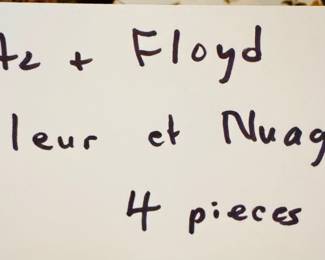 tz + Floyd
leur et Nuag
4 pieces